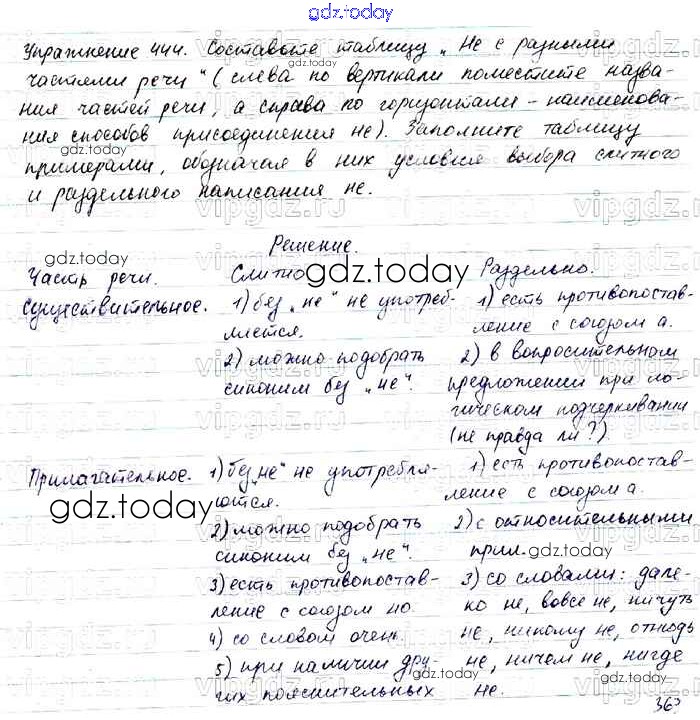 gdz.today
Упражнение 444. Составьте таблицу „Не с разными
частями речи" (слева по вертикали поместите назва-
ния частей речи, а справа по горизонтали - наименова-
ния способов присоединения не). Заполните таблицу
примерами, обозначая в них условия выбора слитного
и раздельного написания не.
Решение.
Часть речи. Слитно Раздельно.
Существительное. 1) без „не" не употреб- 1) есть противопостав-
ляется. ление с союзом а.
2) можно подобрать 2) в вопросительном
синоним без „не". предложении при ло-
гическом подчеркивании
(не правда ли?).
Прилагательное. 1) без „не" не употребля- 1) есть противопостав-
ются. ление с союзом а.
2) можно подобрать 2) с относительными
синоним без „не". прил.
3) есть противопостав- 3) со словами: дале-
ление с союзом но ко не, вовсе не, ничуть
4) со словом очень. не, никому не, отнюдь
5) при наличии дру- не, ничем не, нигде
гих пояснительных не.